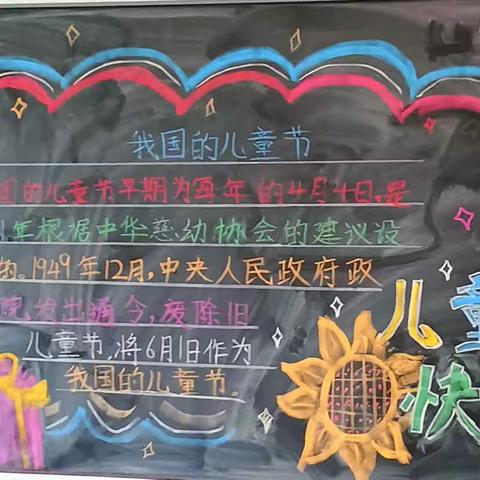 我国的儿童节
国的儿童节早期为每年的4月4日,是
1年根据中华慈幼协会的建议设
的。1949年12月,中央人民政府政
院发出通令,废除旧
儿童节,将6月1日作为
我国的儿童节。
儿童
快